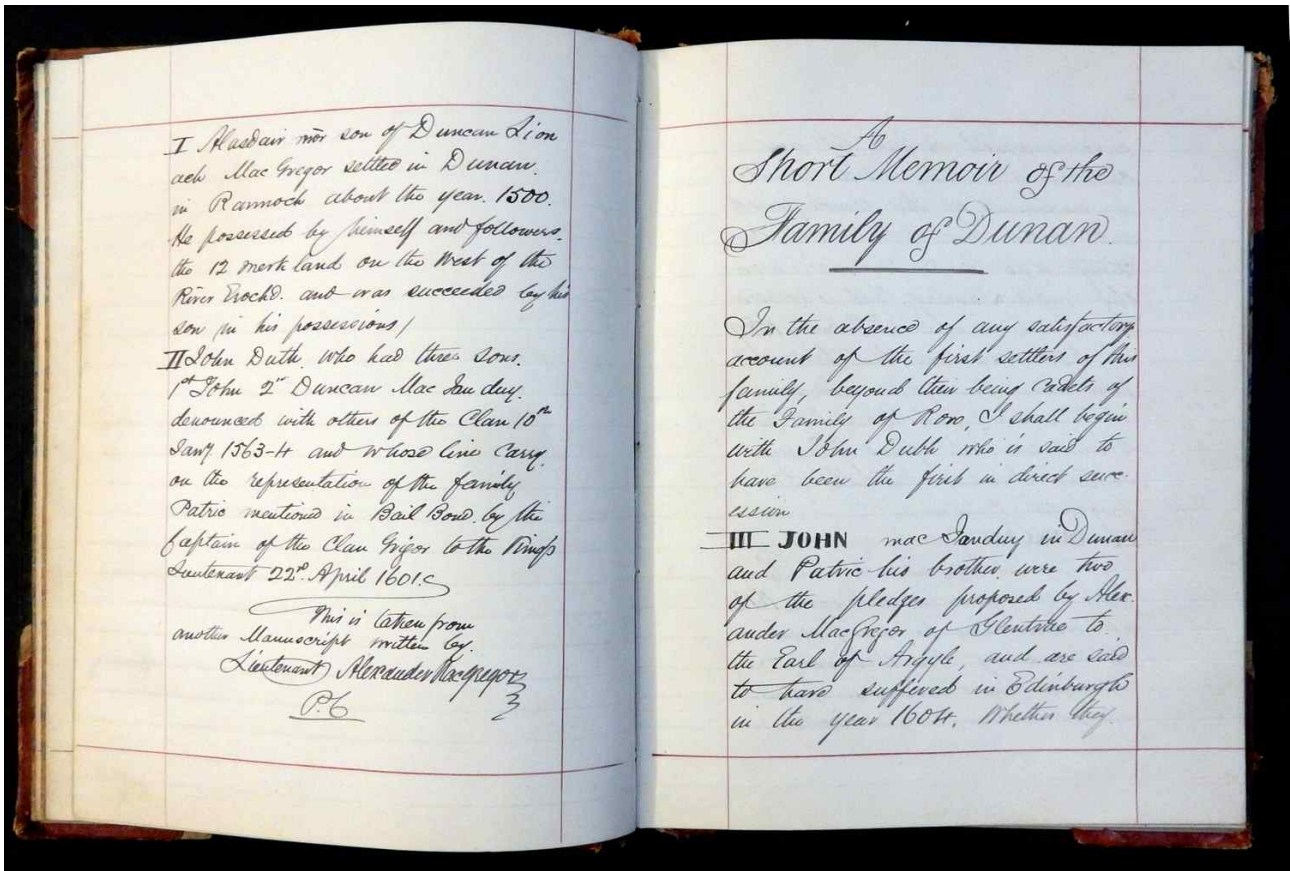 I Alasdair mòr son of Duncan Lion
ach Mac Gregor settled in Dunan.
in Rannoch about the year. 1500.
He possessed by himself and followers.
the 12 merk land on the West of the
River Erochd. and was succeeded by his
son in his possessions/
II John Duth. who had three sons.
1st John 2nd Duncan Mac Ian duy.
denounced with others of the Clan 10th
Jany 1563-4 and whose line carry.
on the representation of the family
Patric mentioned in Bail Bond. by the
Captain of the Clan Grigor to the Kings
Lieutenant 22nd. April 1601.
This is taken from
another Manuscript written by.
Lieutenant Alexander Macgregor
P.C
A
Short Memoir of the
Family of Dunan.
In the absence of any satisfactory
account of the first settlers of this
family, beyond their being Cadets of
the Family of Roro, I shall begin
with John Dubh who is said to
have been the first in direct succ-
ession
III JOHN mac Ianduy in Dunan
and Patric his brother were two
of the pledges proposed by Alex-
ander MacGregor of Glenstrae to.
the Earl of Argyle, and are said
to have suffered in Edinburgh
in the year 1604. Whether they